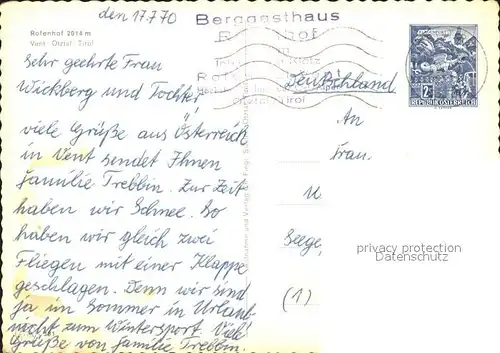 den 17.7.70
Berggasthaus
Rofenhof 2014 m
Vent Ötztal Tirol
Deutschland
REPUBLIK ÖSTERREICH
Sehr geehrte Frau
Wickberg und Tochter
viele Grüße aus Österreich
in Vent sendet Ihnen
Familie Trebbin. Zur Zeit
haben wir Schnee. So
haben wir gleich zwei
Fliegen mit einer Klappe
geschlagen. Denn wir sind
ja im Sommer in Urlaub
nicht zum Wintersport. Viele
Grüße von Familie Trebbin.
An
Frau
(1)
privacy protection
Datenschutz